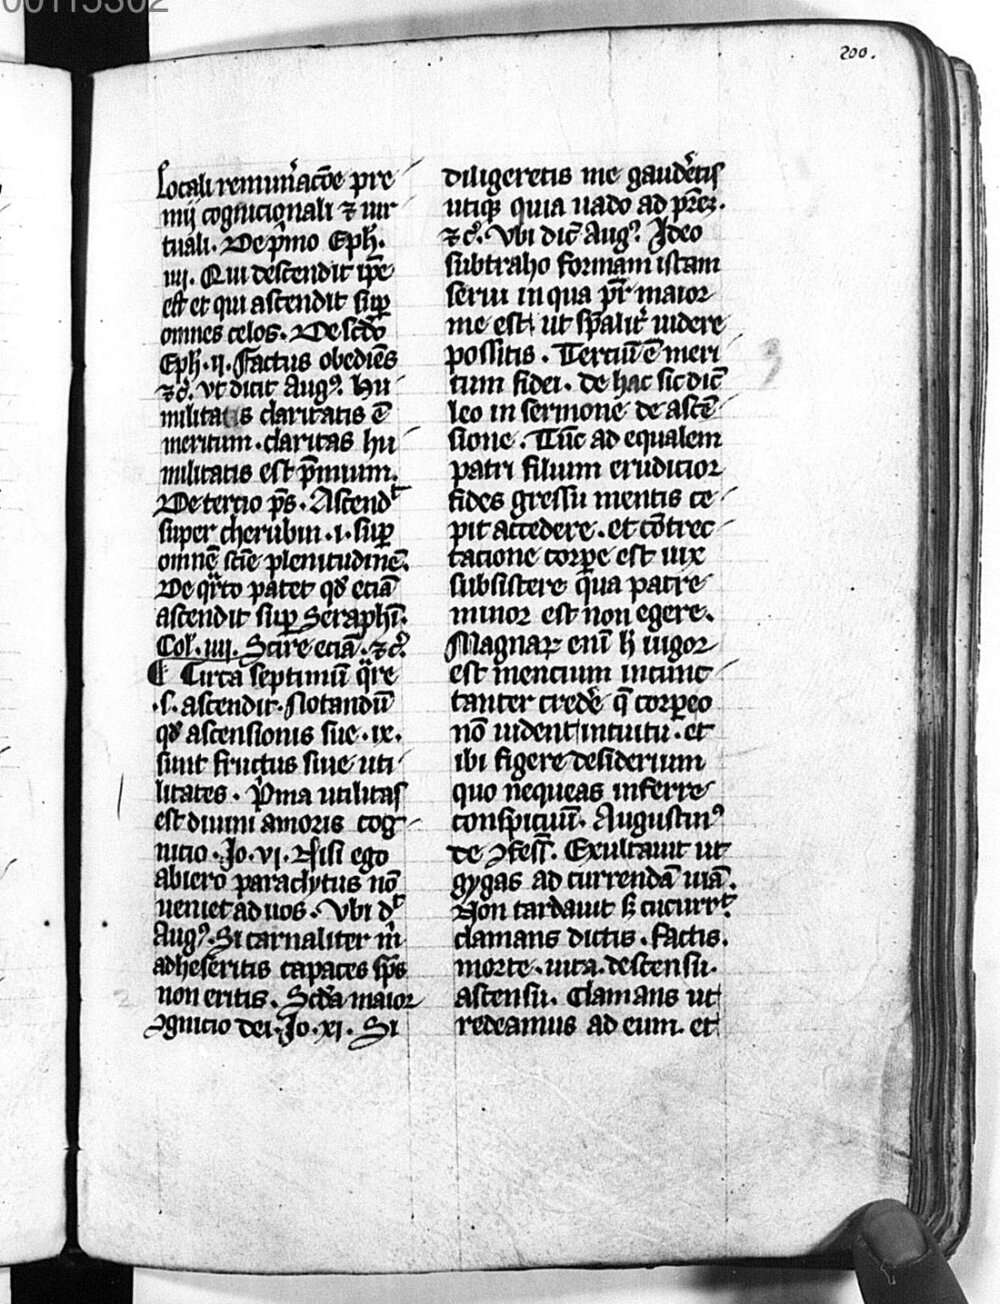 200.
locali remun̄acōe pre
mij cognicionali ⁊ uir
tuali. De p̄mo Eph.
iiij. Qui descendit ip̄e
est et qui ascendit sup
omnes celos. De scd̄o
Eph. ij. Factus obediēs
⁊c̄. vt dicit Augꝰ. Hu
militatis claritatis ē
meritum. claritas hu
militatis est p̄mium.
De tercio ps̄. Ascendt
super cherubin .i. sup
omnē scīe plenitudinē.
De qrto patet qd̄ eciā
ascendit sup Seraphī.
Col. iiij. Scire eciā. ⁊c̄.
Circa septimū qre
.s. ascendit. Notandū
qd̄ ascensionis sue .ix.
sunt fructus siue uti
litates. Prima utilitas
est diuini amoris cog
nicio. Jo. vi. Nisi ego
abiero paraclytus nō
ueniet ad uos. Vbi dt
Augꝰ. Si carnaliter m
adheseritis capaces sp̄s
non eritis. Scd̄a maior
ꝯgnicio dei. Jo. xi. Si
diligeretis me gaud̄etis
utiqꝫ quia uado ad pr̄em.
⁊c̄. Vbi dic̄ Augꝰ. Ideo
subtraho formam istam
serui in qua pr̄ maior
me est ut sp̄alit̄ uidere
possitis. Terciū ē meri
tum fidei. de hac sic dic̄
leo in sermone de ascē
sione. Tūc ad equalem
patri filium erudicior
fides gressu mentis ce
pit accedere. et cōtrec
tacione corpe est uix
subsistere qua patre
minor est non egere.
Magnaꝝ eni h̄ uigor
est mencium incunc
tanter cred̄e q̄ corpeo
nō uident intuitu. et
ibi figere desiderium
quo nequeas inferre
conspicuū. Augustinꝰ
de ꝯfess̄. Exultauit ut
gygas ad currendā uiā.
Non tardauit s̄ cucurrt.
clamans dictis. factis.
morte. uita. descensu.
ascensu. Clamans ut
redeamus ad eum. et